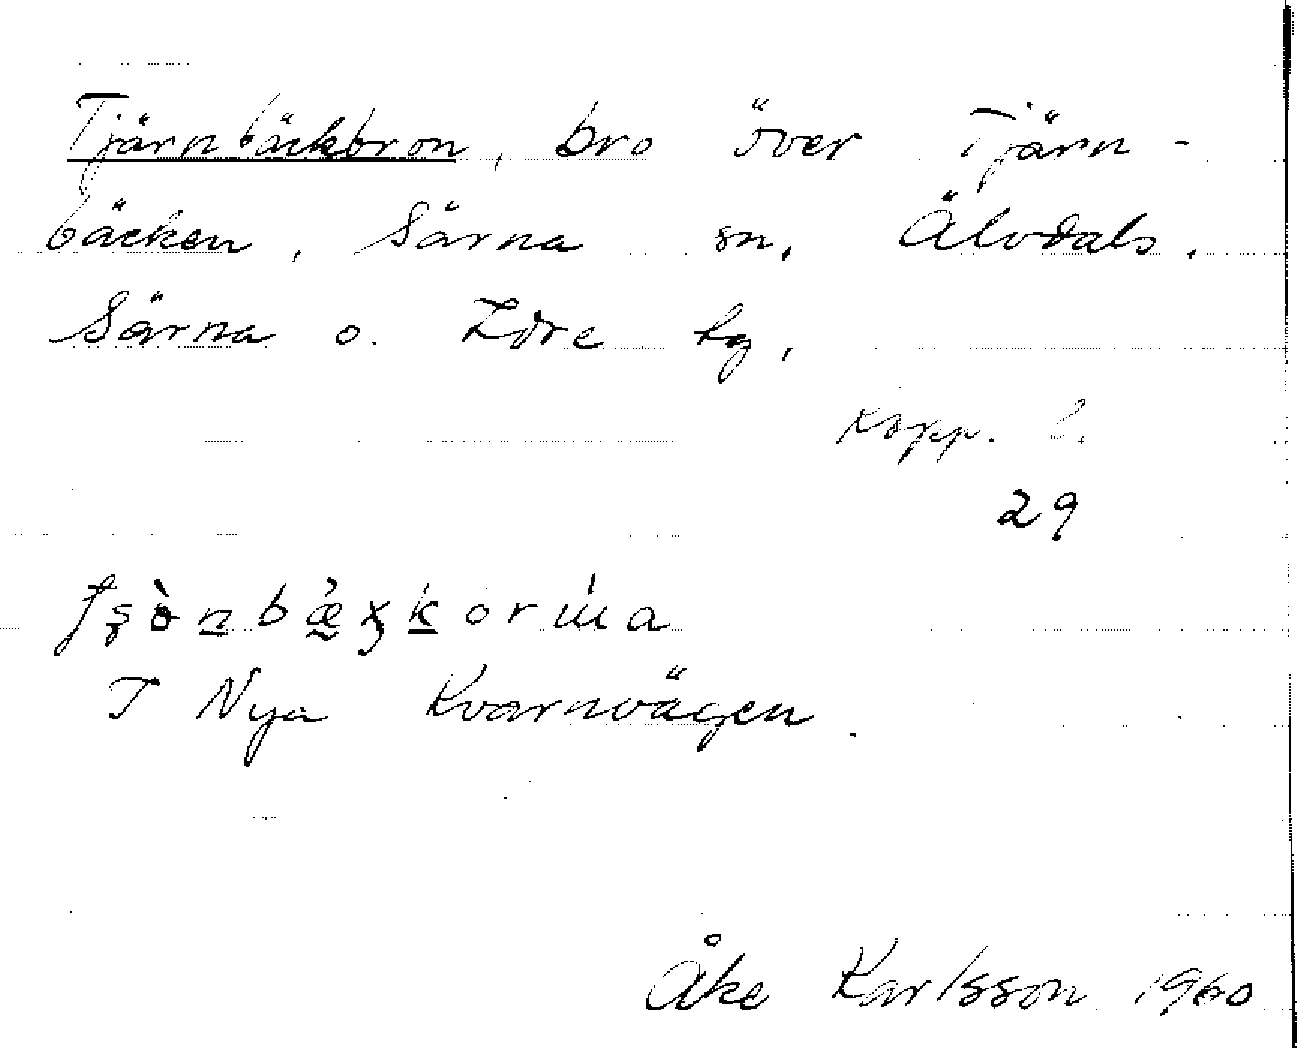 Tjärnbäckbron, bro över Tjärn-
bäcken, Särna sn, Älvdals,
Särna o. Idre tg,
Kopp. l.
29
T Nya Kvarnvägen.
Åke Karlsson 1960